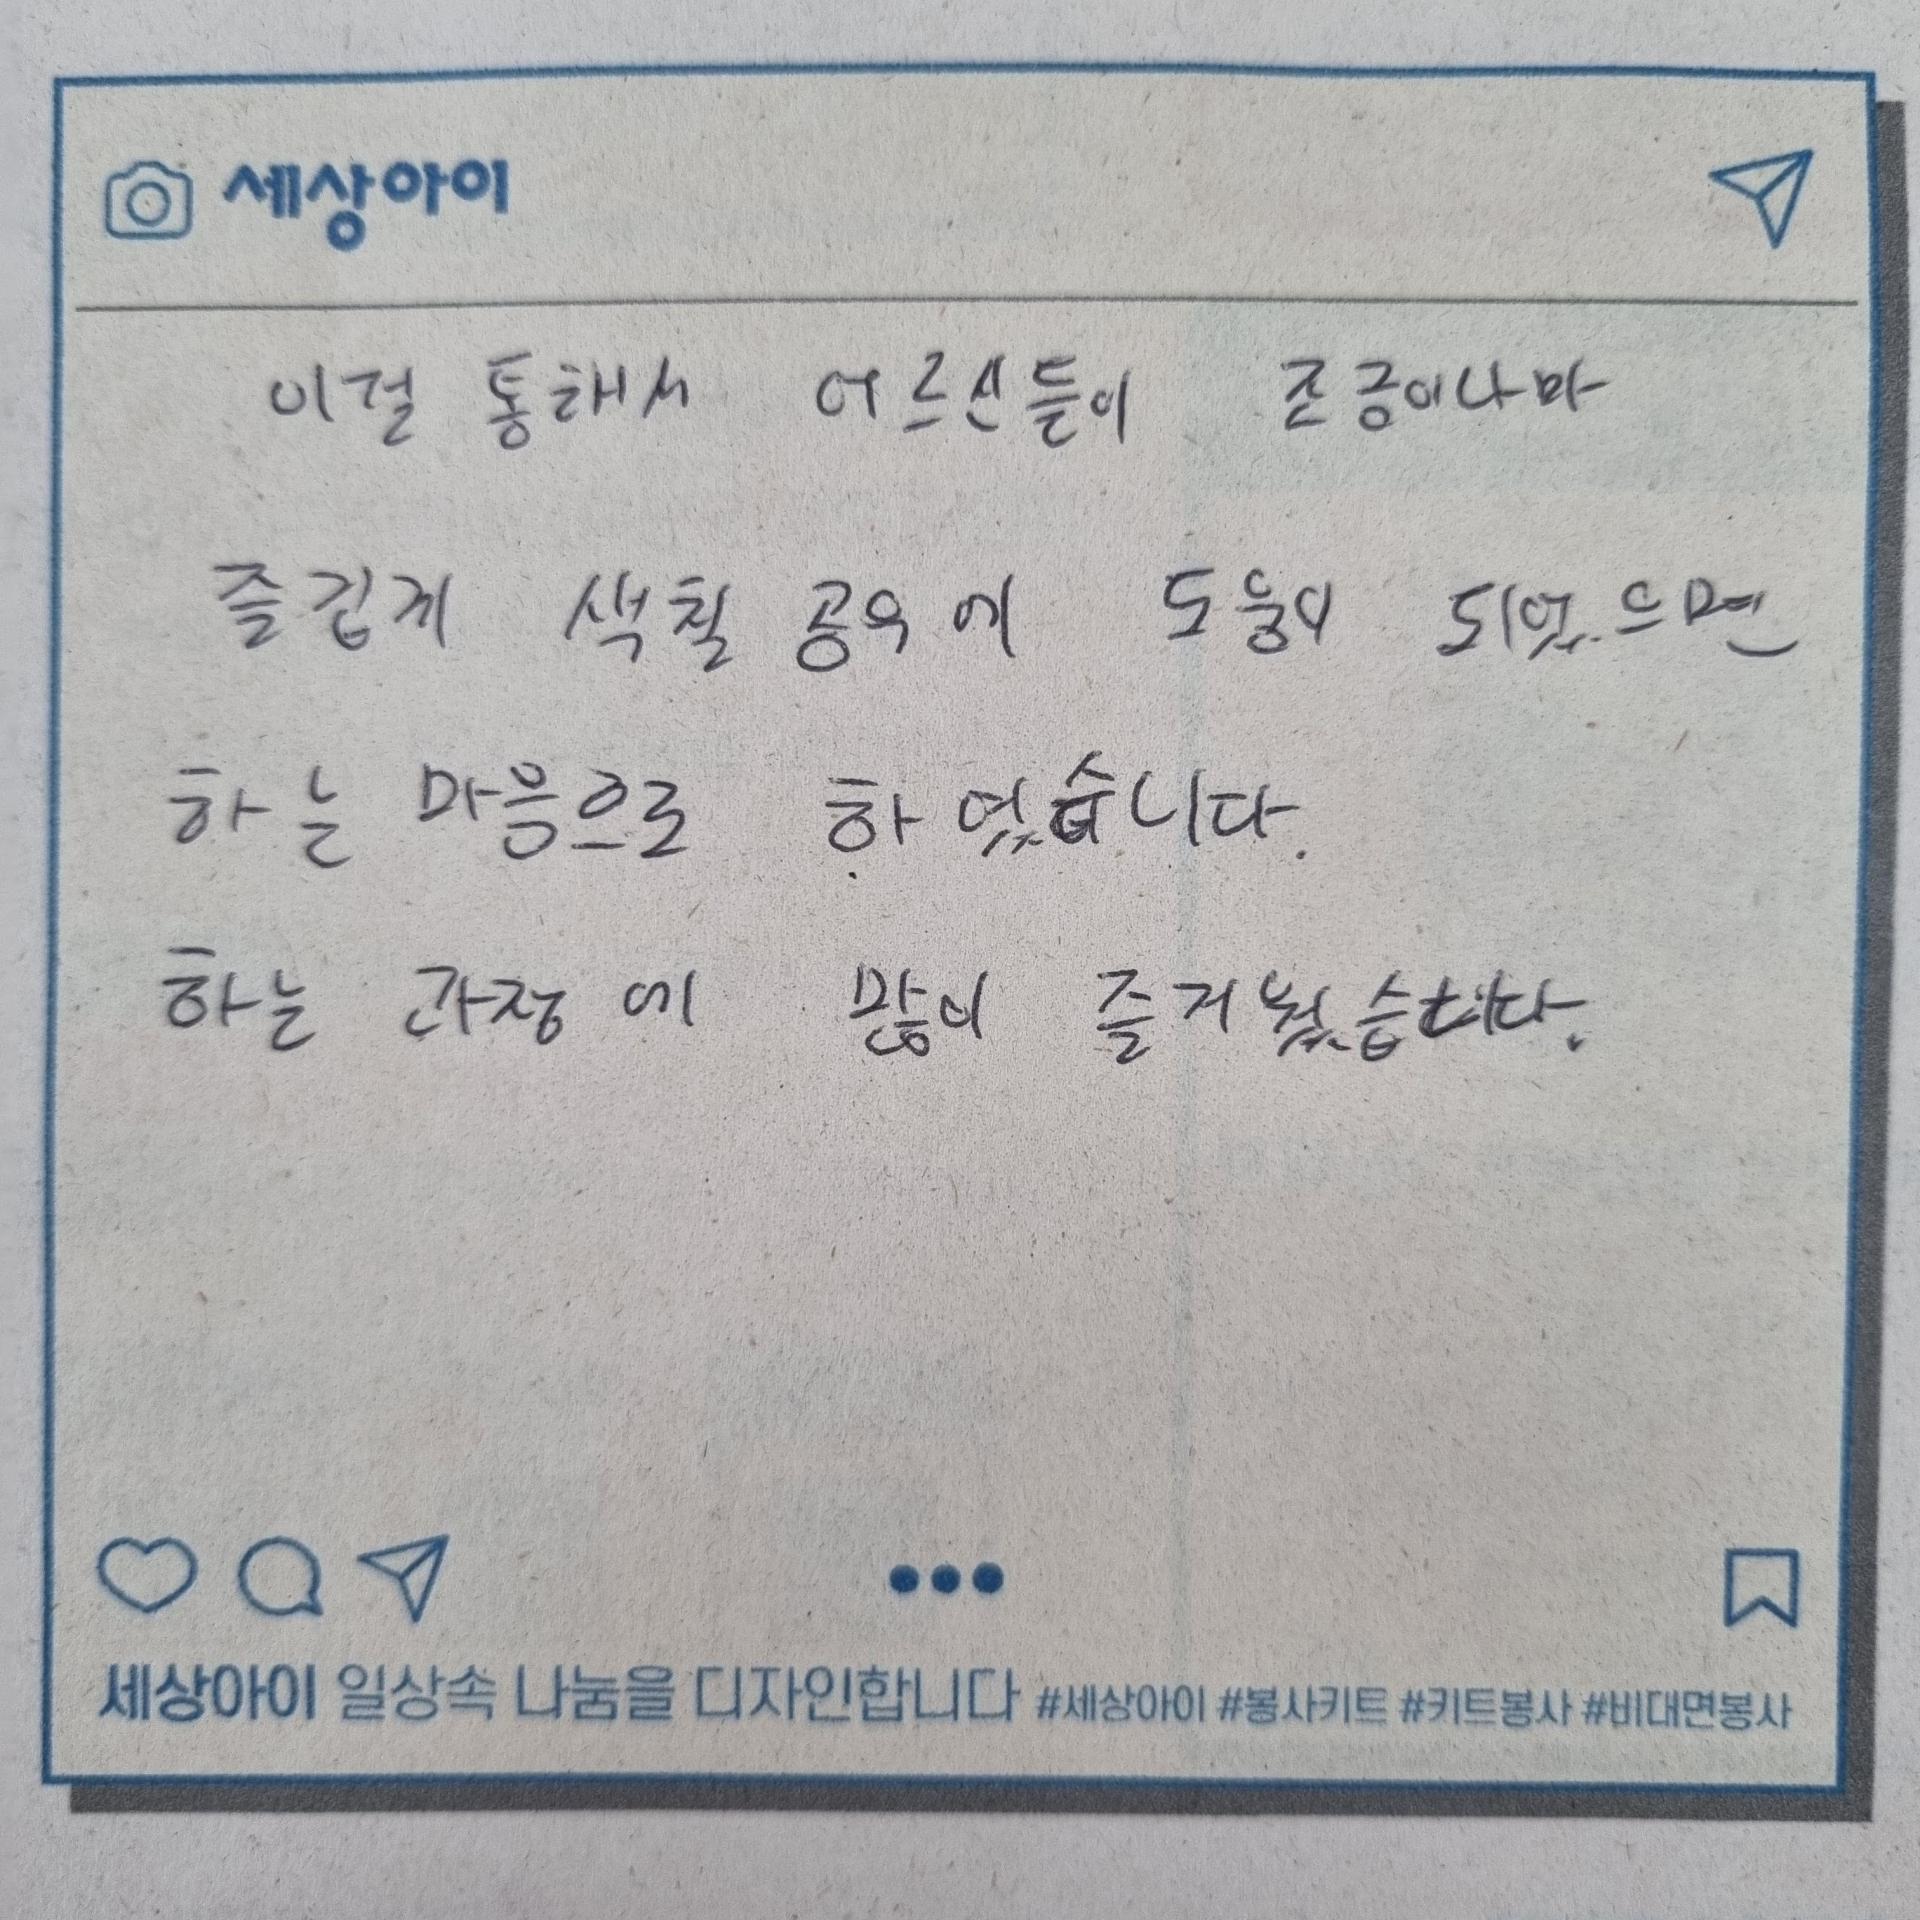 세상아이
이걸 통해서 어르신들이 조금이나마
즐겁게 색칠 공우에 도움이 되었으면
하는 마음으로 하였습니다.
하는 과정에 많이 즐거웠습니다.
세상아이 일상속 나눔을 디자인합니다 #세상아이 #봉사키트 #키트봉사 #비대면봉사